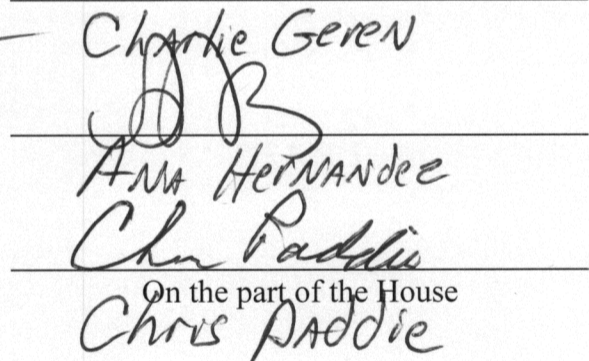 Charlie Geren
Ana Hernandez
Chris Paddie
On the part of the House
Chris Paddie